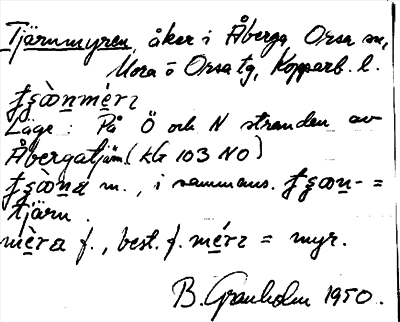 Tjärnmyren, åker i Åberga, Orsa sn,
Mora o Orsa tg, Kopparb. l.
Läge: På Ö och N stranden av
Åbergatjärn (kb 103 NO)
m., i sammans. =
tjärn.
mèra f., best. f. = myr.
B. Granholm 1950.